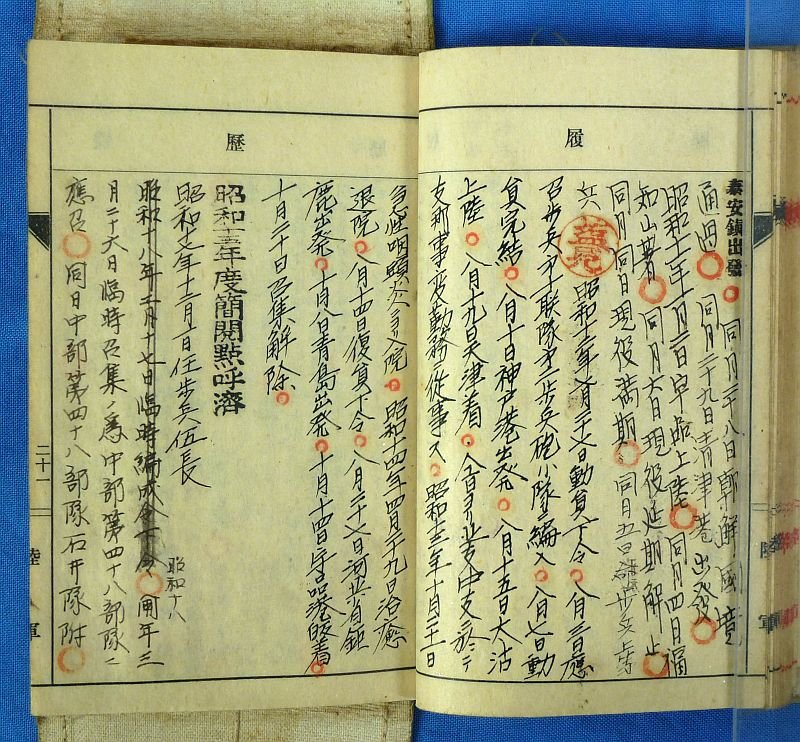 履
泰安鎮出發。同月二十八日朝鮮國境
通過。同月二十九日清津港出發。
昭和十一年十月二日宇品上陸。同月四日福
知山著。同月六日現役延期解止
同月同日現役満期。同月五日
兵 昭和十二年 月二十七日動員下令。八月三日應
召歩兵第二十聯隊第三歩兵砲小隊ニ編入。八月七日動
員完結。八月十日神戸港出発。八月十五日大沽
上陸。八月十九日天津着。
支那事変勤務ニ従事ス。昭和十三年十月二十一日
歴
急性咽頭炎 入院。昭和十四年四月二十九日治癒
退院。八月十四日復員下令。八月二十七日河北省鉅
鹿出発。十月八日青島出発。十月十四日宇品港皈着。
十月二十日召集解除。
昭和十五年度簡閲點呼濟
昭和 年十二月一日任歩兵伍長
昭和十八年二月十七日臨時編成令下令。同年三
昭和十八
月二十六日臨時召集ノ為中部第四十八部隊ニ
應召。同日中部第四十八部隊石井隊附。
二十一
陸
軍
陸
軍